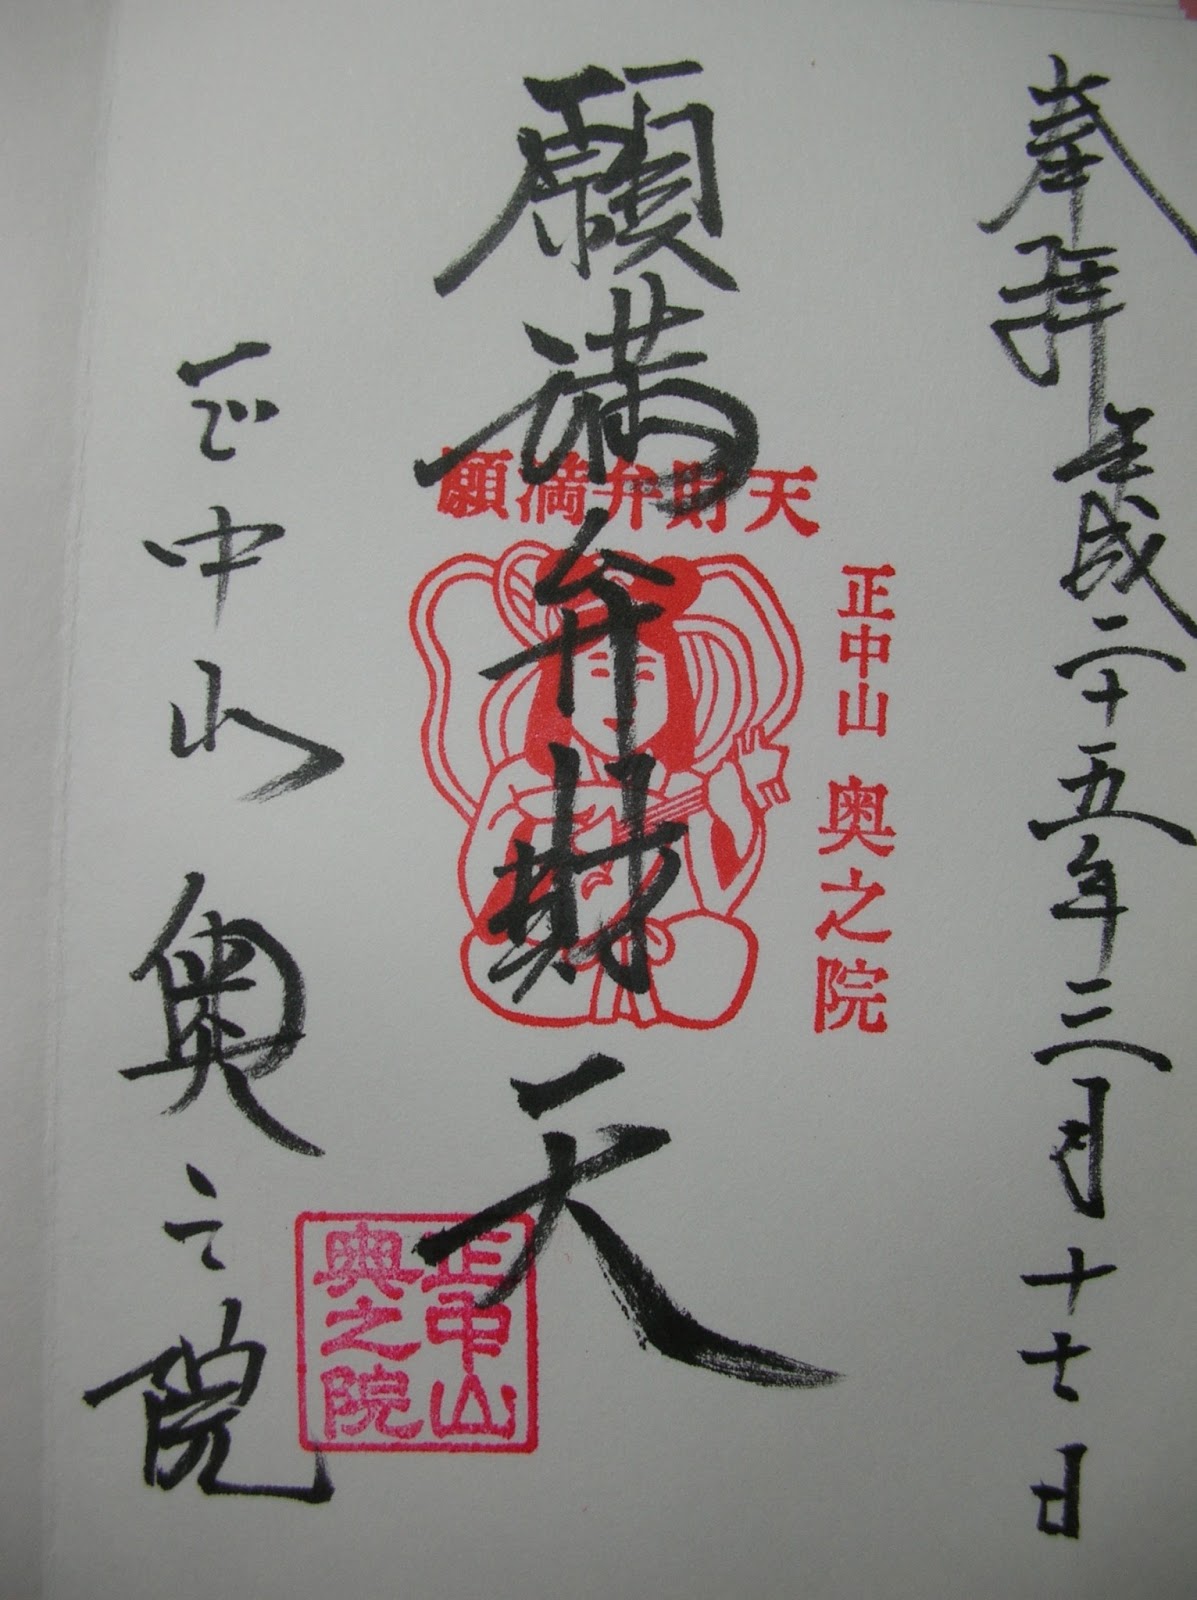 奉拝 平成二十五年三月十七日
正中山 奥之院
願満弁財天
願満弁財天
正中山
奥之院
正中山 奥之院